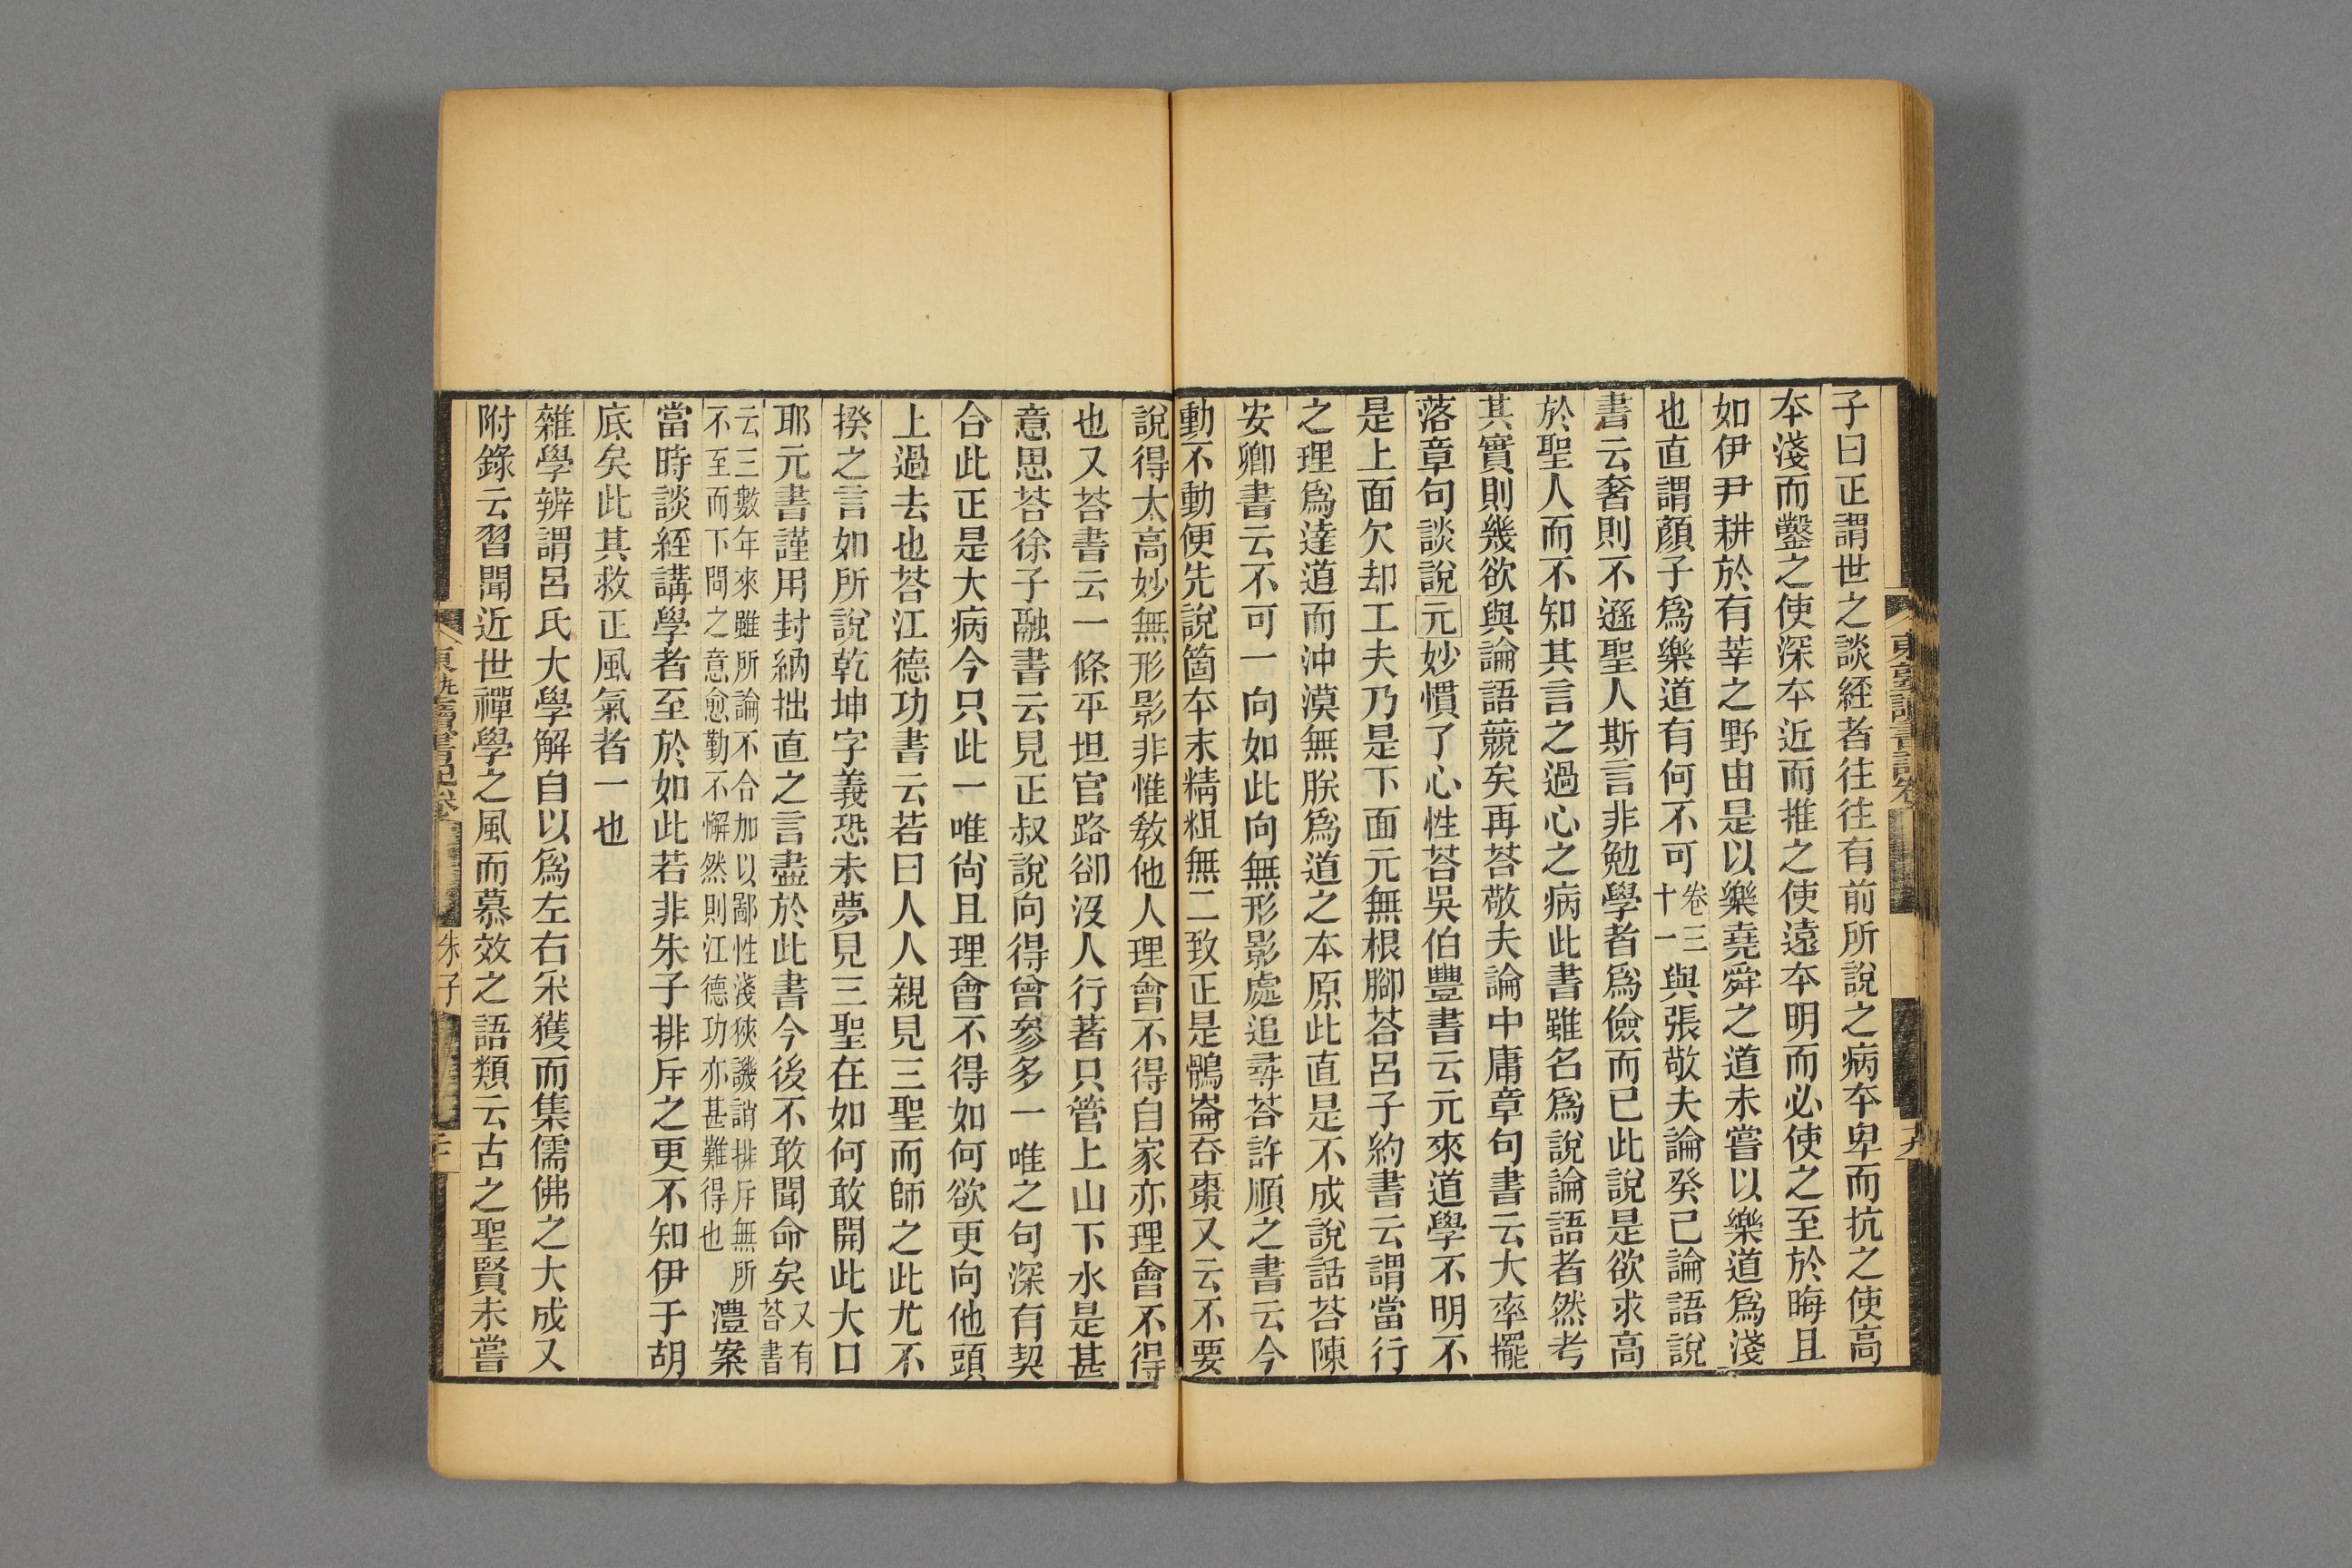 子曰正謂世之談經者往往有前所說之病本卑而抗之使高
本淺而鑿之使深本近而推之使遠本明而必使之至於晦且
如伊尹耕於有莘之野由是以樂堯舜之道未嘗以樂道爲淺
也直謂顏子爲樂道有何不可卷三十一與張敬夫論癸巳論語說
書云奢則不遜聖人斯言非勉學者爲儉而已此說是欲求高
於聖人而不知其言之過心之病此書雖名爲說論語者然考
其實則幾欲與論語競矣再荅敬夫論中庸章句書云大率擺
落章句談說元妙慣了心性荅吳伯豐書云元來道學不明不
是上面欠却工夫乃是下面元無根腳荅呂子約書云謂當行
之理爲達道而沖漠無朕爲道之本原此直是不成說話荅陳
安卿書云不可一向如此向無形影處追尋荅許順之書云今
動不動便先說箇本末精粗無二致正是鶻崙吞棗又云不要
說得太高妙無形影非惟敎他人理會不得自家亦理會不得
也又荅書云一條平坦官路卻沒人行著只管上山下水是甚
意思荅徐子融書云見正叔說向得曾參多一唯之句深有契
合此正是大病今只此一唯尙且理會不得如何欲更向他頭
上過去也荅江德功書云若曰人人親見三聖而師之此尤不
揆之言如所說乾坤字義恐未夢見三聖在如何敢開此大口
耶元書謹用封納拙直之言盡於此書今後不敢聞命矣又有荅書
云三數年來雖所論不合加以鄙性淺狹譏誚排斥無所不至而下問之意愈勤不懈然則江德功亦甚難得也澧案
當時談經講學者至於如此若非朱子排斥之更不知伊于胡
底矣此其救正風氣者一也
雜學辨謂呂氏大學解自以爲左右采獲而集儒佛之大成又
附錄云習聞近世禪學之風而慕效之語類云古之聖賢未嘗
東塾讀書記卷
朱子